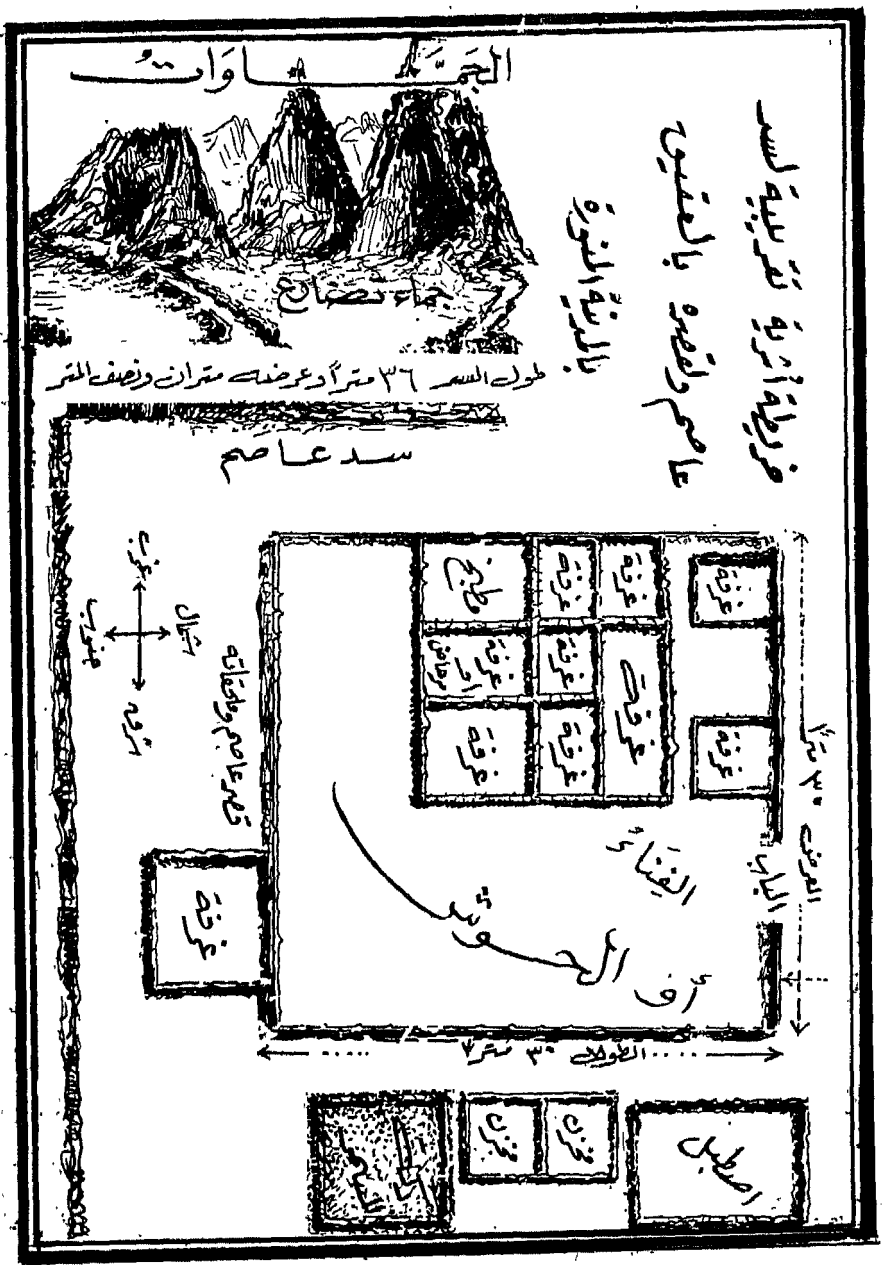 خريطة أثرية تقريبية لسد
عاصم ولقصره بالعقيق
بالمدينة المنورة
الجَمَّاوَاتُ
جماء تضارع
طول السد ٣٦ متراً وعرضه متران ونصف المتر
سد عاصم
غرب
شمال
جنوب
شرق
قصر عاصم وملحقاته
مطبخ
غرفة
غرفة
غرفة
غرفة
أو
مرحاض
غرفة
غرفة
غرفة
غرفة
غرفة
غرفة
العرض ٣٠ متراً
الباب
الفِنَاءُ
أو الحوش
غرفة
الطول ٣٠ متراً
مخزن
مخزن
اصطبل